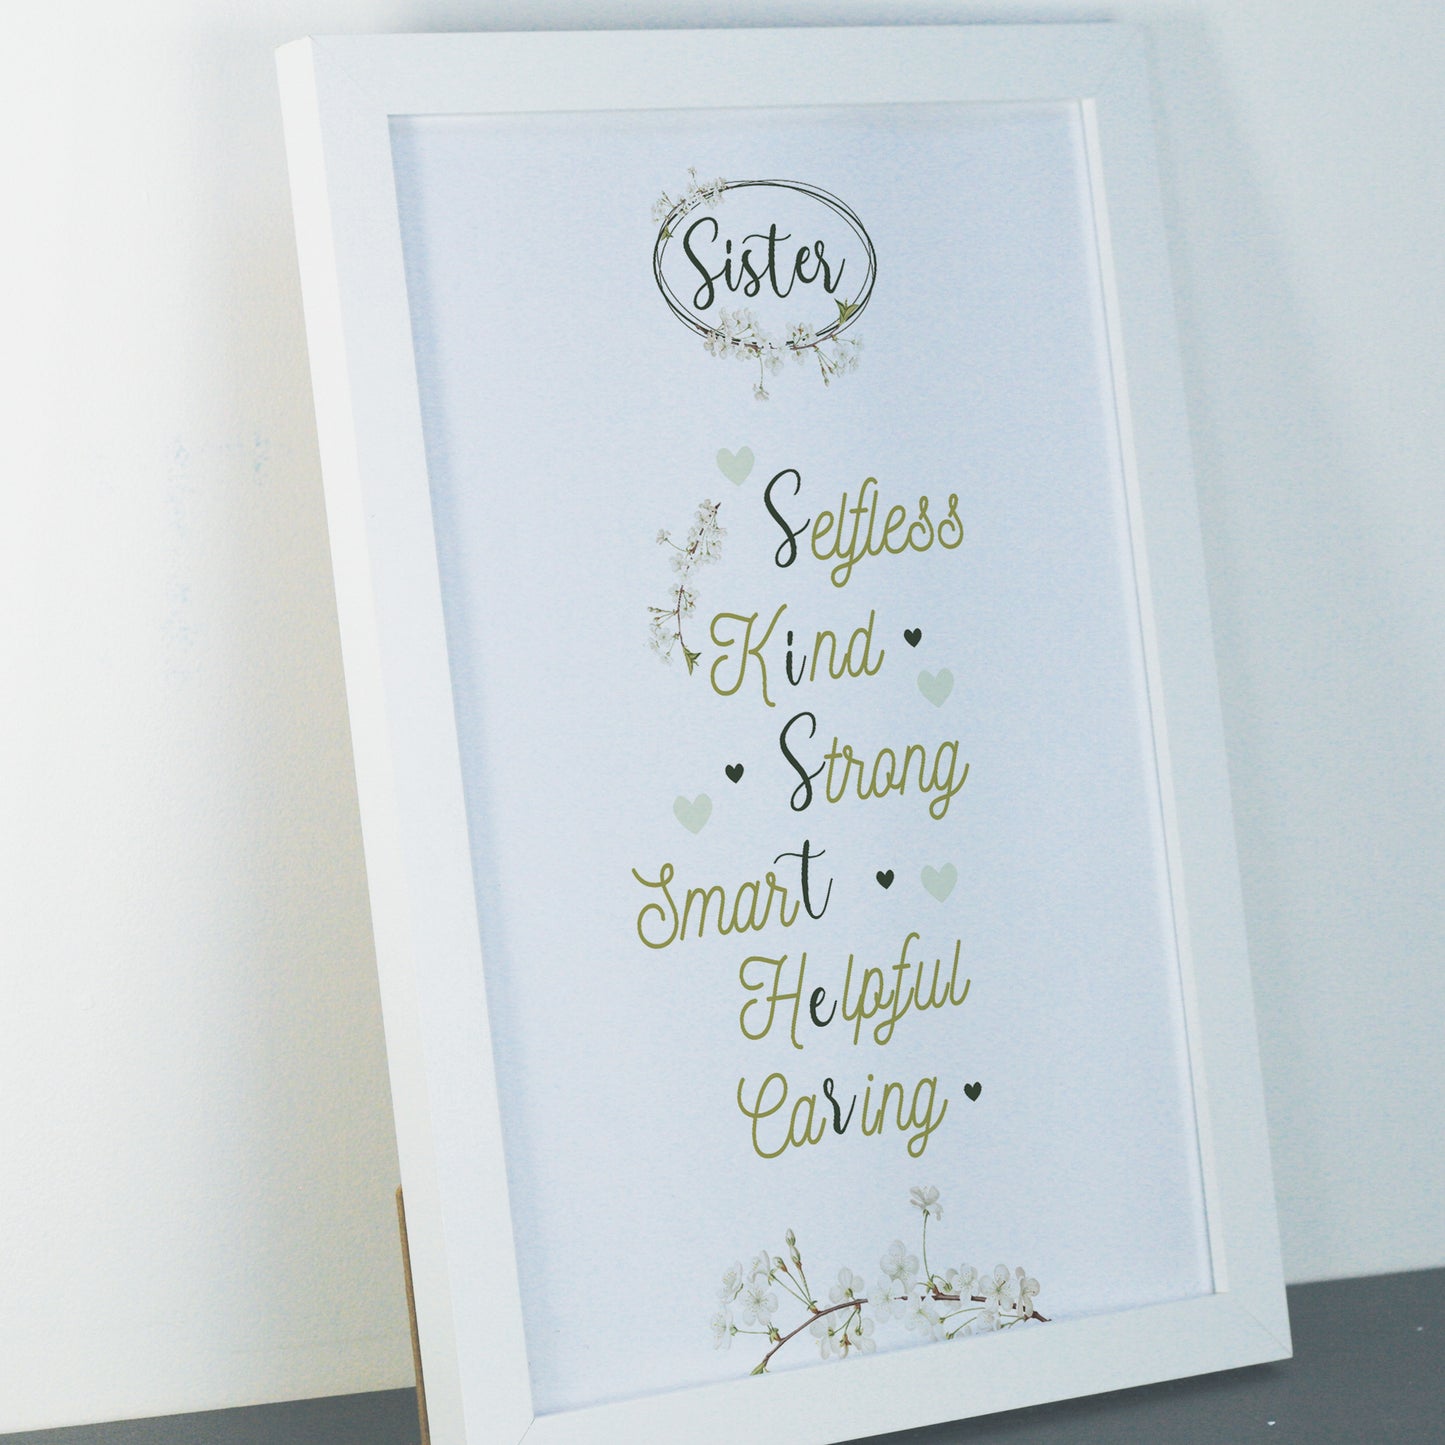 Sister
Selfless
Kind
Strong
Smart
Helpful
Caring